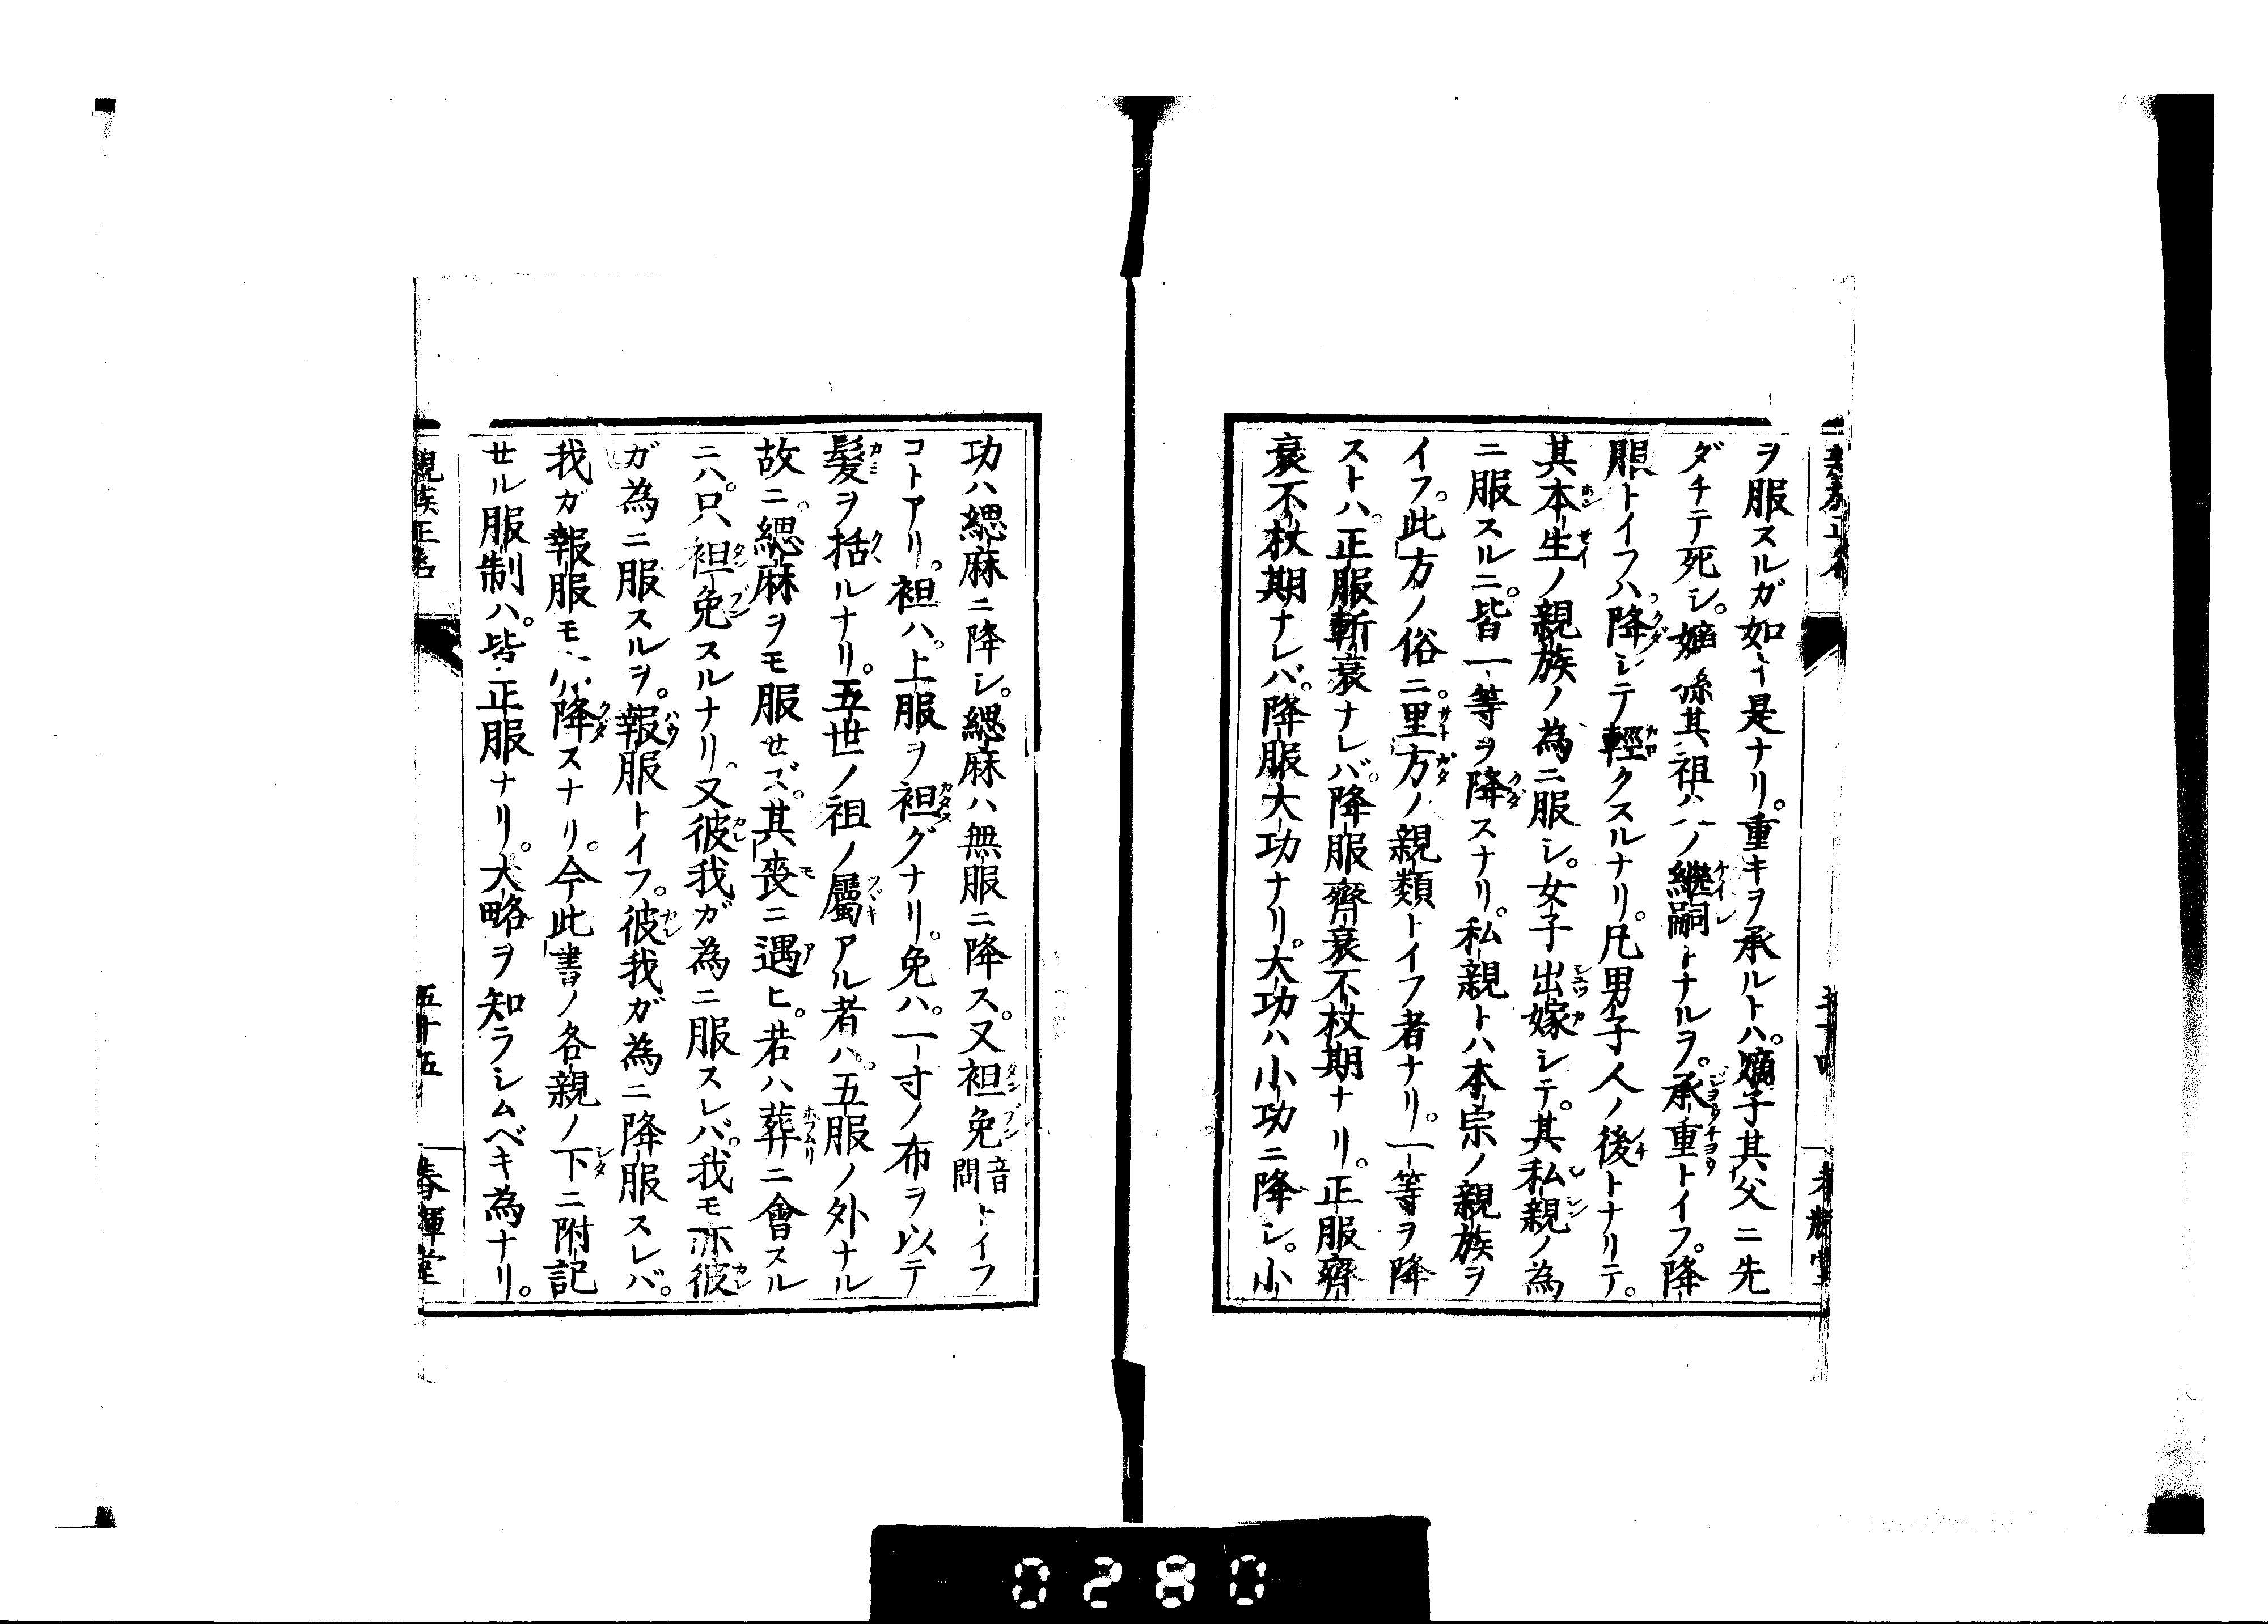 ヲ服スルガ如キ是ナリ。重キヲ承ルトハ。嫡子其父ニ先
ダチテ死シ。嫡孫其祖ノ継嗣トナルヲ。承重トイフ。降
服トイフハ。降シテ輕クスルナリ。凡男子人ノ後トナリテ。
其本生ノ親族ノ為ニ服シ。女子出嫁シテ。其私親ノ為
ニ服スルニ。皆一等ヲ降スナリ。私親トハ本宗ノ親族ヲ
イフ。此方ノ俗ニ。里方ノ親類トイフ者ナリ。一等ヲ降
ストハ。正服斬衰ナレバ。降服齊衰不杖期ナリ。正服齊
衰不杖期ナレバ。降服大功ナリ。大功ハ小功ニ降シ。小
功ハ緦麻ニ降シ。緦麻ハ無服ニ降ス。又袒免音問トイフ
コトアリ。袒ハ。上服ヲ袒グナリ。免ハ。一寸ノ布ヲ以テ
髮ヲ括ルナリ。五世ノ祖ノ屬アル者ハ。五服ノ外ナル
故ニ。緦麻ヲモ服セズ。其喪ニ遇ヒ。若ハ葬ニ會スル
ニハ。只袒免スルナリ。又彼我ガ為ニ服スレバ。我モ亦彼
ガ為ニ服スルヲ。報服トイフ。彼我ガ為ニ降服スレバ。
我ガ報服モ亦降スナリ。今此書ノ各親ノ下ニ附記
セル服制ハ。皆正服ナリ。大略ヲ知ラシムベキ為ナリ。
親族正名
五十五
春輝堂
0280